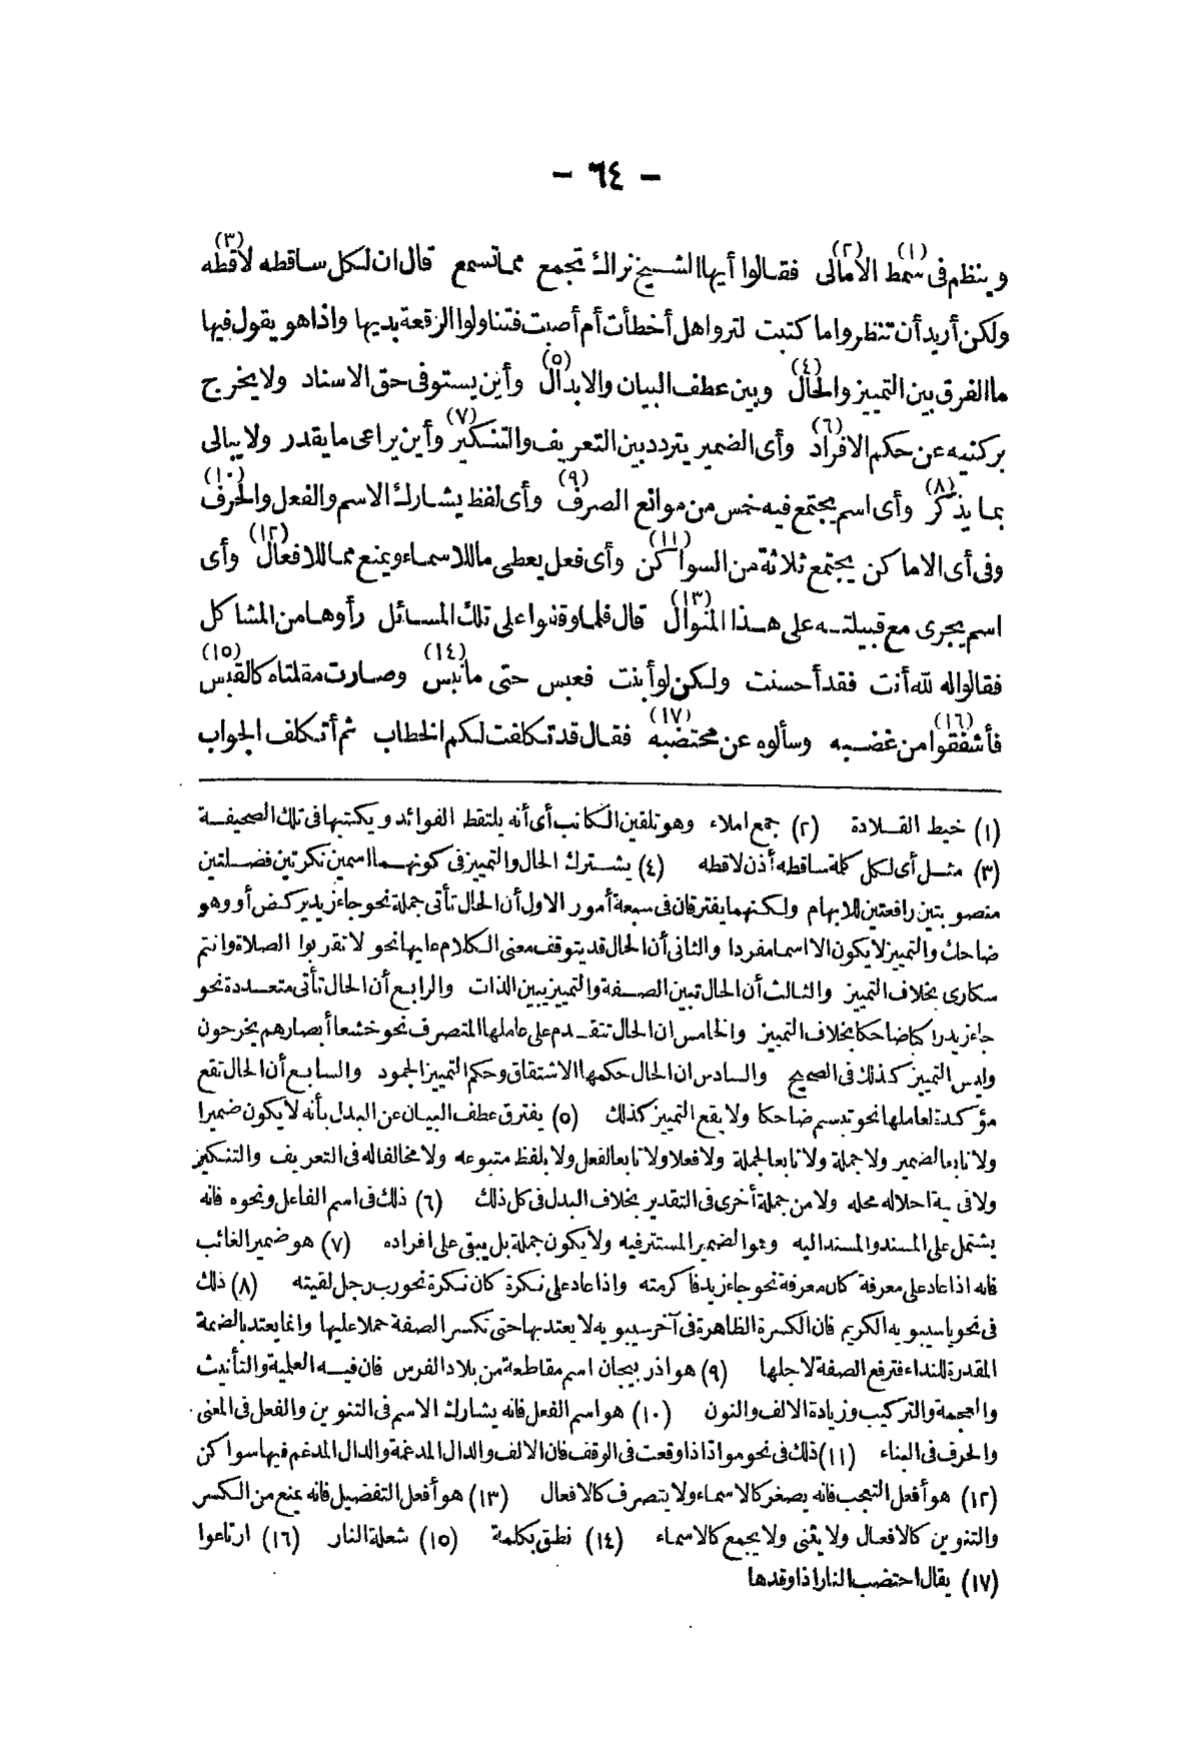 - ٦٤ -
وينظم فى سمط (١) الامالى (٢) فقالوا أيها الشيخ نراك تجمع مما تسمع قال ان لكل ساقطه لاقطه (٣)
ولكن أريد أن تنظروا ما كتبت لتروا هل أخطأت أم أصبت فتناولوا الرقعة بديها واذا هو يقول فيها
ما الفرق بين التمييز والحال (٤) وبين عطف البيان والابدال (٥) وأين يستوفى حق الاسناد ولا يخرج
بركنيه عن حكم الافراد (٦) وأى الضمير يتردد بين التعريف والتنكير (٧) وأين يراعى ما يقدر ولا يبالى
بما يذكر (٨) وأى اسم يجتمع فيه خمس من موانع الصرف (٩) وأى لفظ يشارك الاسم والفعل والحرف (١٠)
وفى أى الاماكن يجتمع ثلاثة من السواكن (١١) وأى فعل يعطى ما للاسماء ويمنع مما للافعال (١٢) وأى
اسم يجرى مع قبيلته على هذا المنوال (١٣) قال فلما وقفوا على تلك المسائل رأوها من المشاكل
فقالوا له لله أنت فقد أحسنت ولكن لو أبنت فعبس حتى ما نبس (١٤) وصارت مقلتاه كالقبس (١٥)
فأشفقوا (١٦) من غضبه وسألوه عن محتضبه (١٧) فقال قد تكلفت لكم الخطاب ثم أتكلف الجواب
(١) خيط القلادة (٢) جمع املاء وهو تلقين الكاتب أى أنه يلتقط الفوائد ويكتبها فى تلك الصحيفة
(٣) مثل أى لكل كلمة ساقطه أذن لاقطه (٤) يشترك الحال والتمييز فى كونهما اسمين نكرتين فضلتين
منصوبتين رافعتين للابهام ولكنهما يفترقان فى سبعة أمور الاول أن الحال تأتى جملة نحو جاء زيد يركض أو وهو
ضاحك والتمييز لا يكون الا اسما مفردا والثانى أن الحال قد يتوقف معنى الكلام عليها نحو لا تقربوا الصلاة وانتم
سكارى بخلاف التمييز والثالث أن الحال تبين الصفة والتمييز يبين الذات والرابع أن الحال تأتى متعددة نحو
جاء زيد راكبا ضاحكا بخلاف التمييز والخامس ان الحال تتقدم على عاملها المتصرف نحو خشعا أبصارهم يخرجون
وليس التمييز كذلك فى الصحيح والسادس ان الحال حكمها الاشتقاق وحكم التمييز الجمود والسابع أن الحال تقع
مؤكدة لعاملها نحو تبسم ضاحكا ولا يقع التمييز كذلك (٥) يفترق عطف البيان عن البدل بأنه لا يكون ضميرا
ولا تابعا لضمير ولا جملة ولا تابعا لجملة ولا فعلا ولا تابعا لفعل ولا بلفظ متبوعه ولا مخالفا له فى التعريف والتنكير
ولا فى نية احلاله محله ولا من جملة أخرى فى التقدير بخلاف البدل فى كل ذلك (٦) ذلك فى اسم الفاعل ونحوه فانه
يشتمل على المسند والمسند اليه وهو الضمير المستتر فيه ولا يكون جملة بل يبقى على افراده (٧) هو ضمير الغائب
فانه اذا عاد على معرفة كان معرفة نحو جاء زيد فأكرمته واذا عاد على نكرة كان نكرة نحو رب رجل لقيته (٨) ذلك
فى نحو يا سيبويه الكريم فان الكسرة الظاهرة فى آخر سيبويه لا يعتد بها حتى تكسر الصفة حملا عليها وانما يعتد بالضمة
المقدرة للنداء فترفع الصفة لاجلها (٩) هو اذربيجان اسم مقاطعة من بلاد الفرس فان فيه العلمية والتأنيث
والعجمة والتركيب وزيادة الالف والنون (١٠) هو اسم الفعل فانه يشارك الاسم فى التنوين والفعل فى المعنى
والحرف فى البناء (١١) ذلك فى نحو مواد اذا وقعت فى الوقف فان الالف والدال المدغمة والدال المدغم فيها سواكن
(١٢) هو أفعل التعجب فانه يصغر كالاسماء ولا يتصرف كالافعال (١٣) هو أفعل التفضيل فانه يمنع من الكسر
والتنوين كالافعال ولا يثنى ولا يجمع كالاسماء (١٤) نطق بكلمة (١٥) شعلة النار (١٦) ارتاعوا
(١٧) يقال احتضب النار اذا وقدها